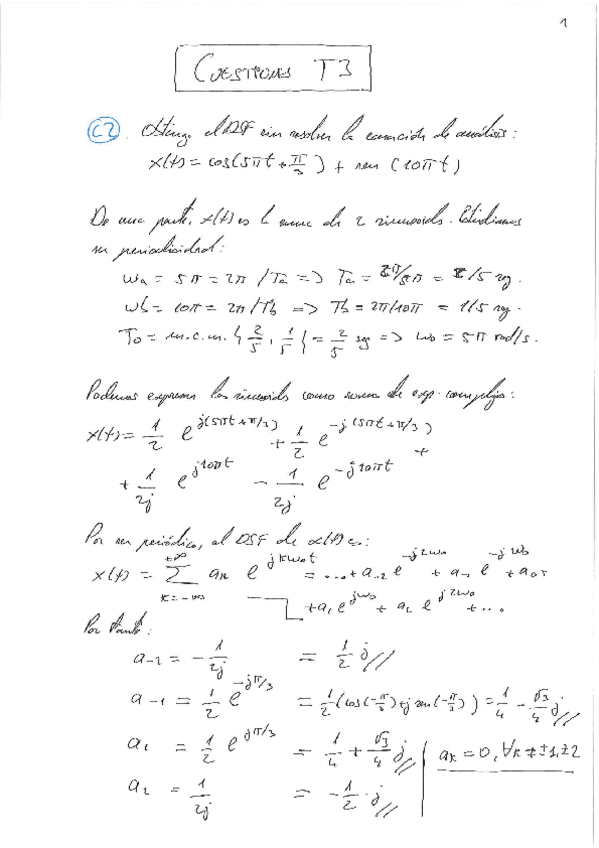 1
CUESTIONES T3
C2. Obtenga el DSF sin resolver la ecuación de análisis:
x(t) = cos(5πt + π/3) + sen(10πt)
De una parte, x(t) es la suma de 2 sinusoids. Estudiamos
su periodicidad:
wa = 5π = 2π/Ta => Ta = 2π/5π = 2/5 sg.
wb = 10π = 2π/Tb => Tb = 2π/10π = 1/5 sg.
To = m.c.m. { 2/5, 1/5 } = 2/5 sg => wo = 5π rad/s.
Podemos expresar las sinusoids como suma de exp. complejas:
x(t) = 1/2 e^{j(5πt+π/3)} + 1/2 e^{-j(5πt+π/3)} +
+ 1/2j e^{j10πt} - 1/2j e^{-j10πt}
Por ser periódica, el DSF de x(t) es:
x(t) = Σ_{k=-∞}^{+∞} ak e^{jkwot} = ...+a-2 e^{-j2wo} + a-1 e^{-jwo} + a0 +
+a1 e^{jwo} + a2 e^{j2wo} +...
Por tanto:
a-2 = -1/2j = 1/2 j //
a-1 = 1/2 e^{-jπ/3} = 1/2 (cos(-π/3)+j sen(-π/3)) = 1/4 - √3/4 j //
a1 = 1/2 e^{jπ/3} = 1/4 + √3/4 j // | ak = 0, ∀k ≠ ±1, ±2
a2 = 1/2j = -1/2 · j //